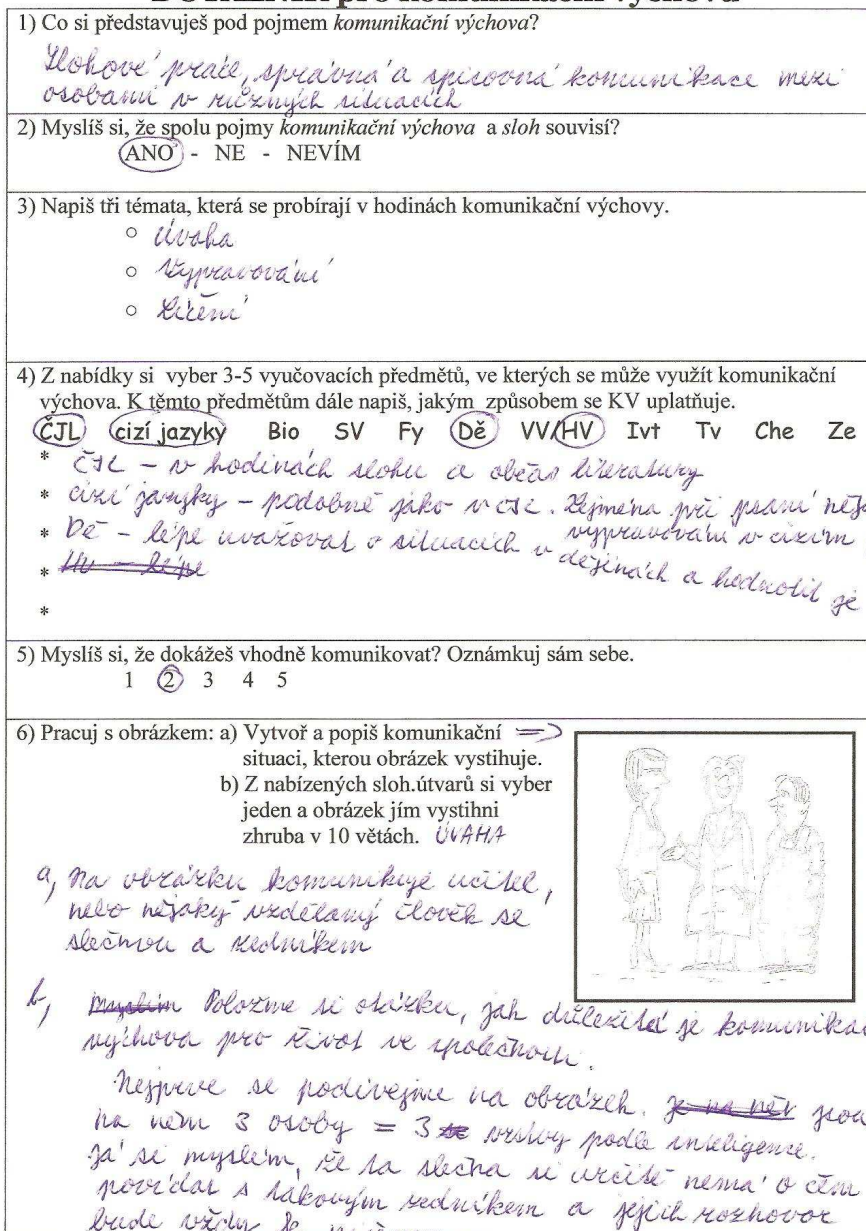 DOTAZNÍK pro komunikační výchovu
1) Co si představuješ pod pojmem komunikační výchova?
Slohové práce, správná a spisovná komunikace mezi
osobami v různých situacích
2) Myslíš si, že spolu pojmy komunikační výchova a sloh souvisí?
ANO - NE - NEVÍM
3) Napiš tři témata, která se probírají v hodinách komunikační výchovy.
○ Úvaha
○ Vypravování
○ Líčení
4) Z nabídky si vyber 3-5 vyučovacích předmětů, ve kterých se může využít komunikační
výchova. K těmto předmětům dále napiš, jakým způsobem se KV uplatňuje.
ČJL cizí jazyky Bio SV Fy Dě VV/HV Ivt Tv Che Ze
* ČJL - v hodinách slohu a občas literatury
* cizí jazyky - podobně jako v ČJL. Zejména při psaní
vypravování v cizím
* Dě - lépe uvažovat o situacích v dějinách a hodnotit je
* Hv - lépe
*
5) Myslíš si, že dokážeš vhodně komunikovat? Oznámkuj sám sebe.
1 2 3 4 5
6) Pracuj s obrázkem: a) Vytvoř a popiš komunikační =>
situaci, kterou obrázek vystihuje.
b) Z nabízených sloh.útvarů si vyber
jeden a obrázek jím vystihni
zhruba v 10 větách. ÚVAHA
a, Na obrázku komunikuje učitel,
nebo nějaký vzdělaný člověk se
slečnou a zedníkem
b, Myslím Položme si otázku, jak důležitá je
výchova pro život ve společnosti.
Nejprve se podívejme na obrázek. Je na něm jsou
na něm 3 osoby = 3 vrstvy podle inteligence.
Já si myslem, že ta slečna si určitě nemá o čem
povídat s takovým zedníkem a jejich rozhovor
bude vždy